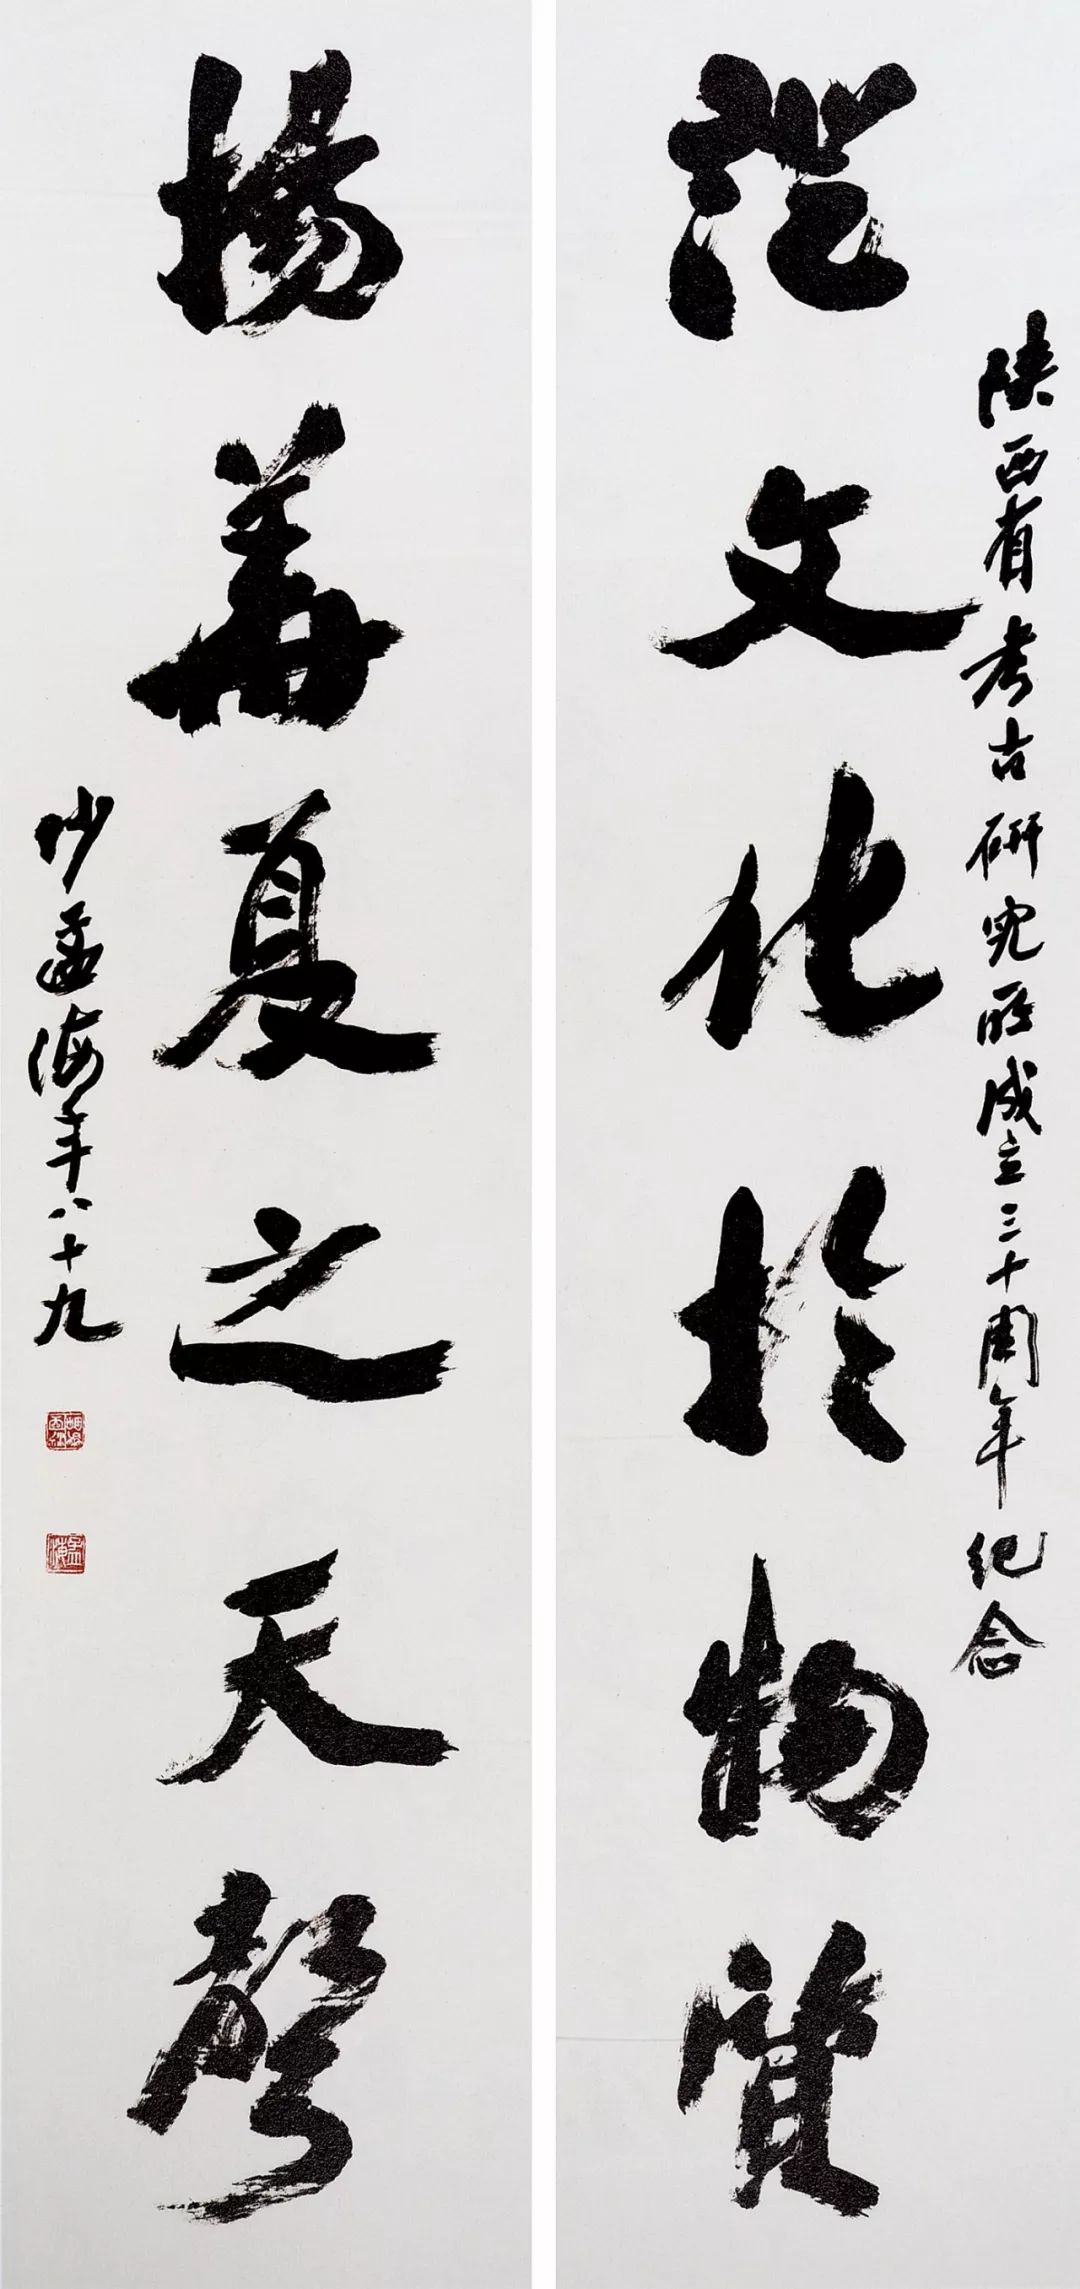 陝西省考古研究所成立三十周年紀念
證文化於物質
揚華夏之天聲
沙孟海年八十九
孟海